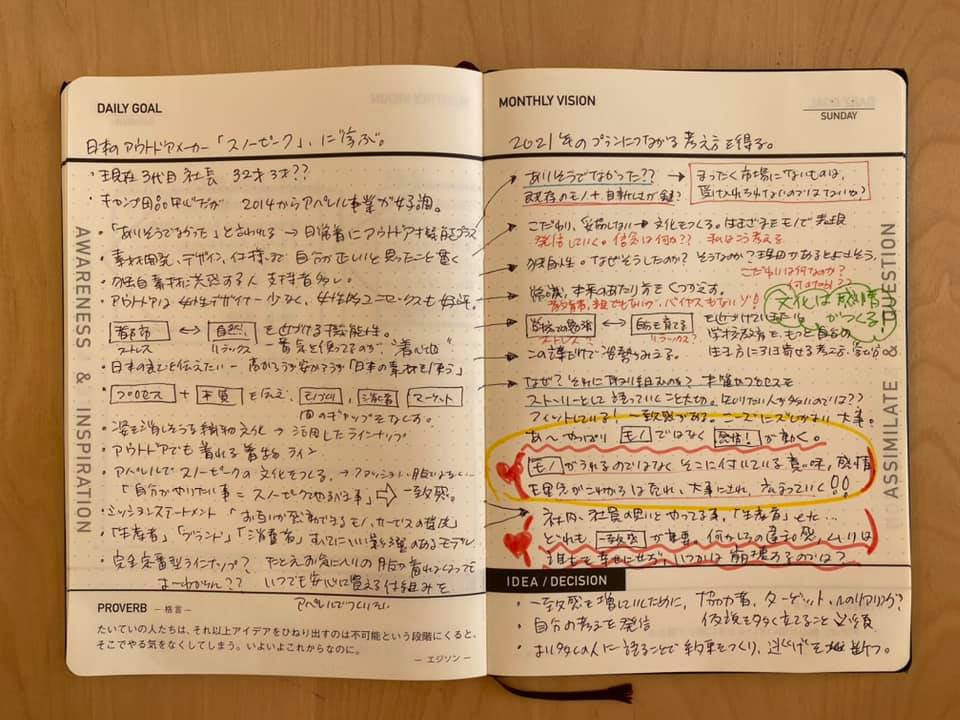 DAILY GOAL
日本のアウトドアメーカー「スノーピーク」に学ぶ。
・現在3代目社長 32才 3才??
・キャンプ用品中心だが 2014からアパレル事業が好調。
・「ありそうでなかった」と言われる → 日常着にアウトドア才機能プラス
・素材開発、デザイン、仕様まで 自分が正しいと思ったこと貫く
・独自素材に共感する人 支持者多い
・アウトドアは 女性デザイナー少なく、女性的ユニセックスも好評。
都市 ⟷ 自然 を近づける機能性。
ストレス リラックス 一番気を使ってるのが "着心地"
・日本の良さを伝えたい ー 高かろうが安かろうが「日本の素材を使う」
・プロセス + 本質 を伝え、モノづくり 消費者 マーケット
間のギャップをなくす。
・姿を消しそうな織物文化 → 活用したラインナップ
・アウトドアでも着れる着物ライン
・アパレルでスノーピークの文化をつくる
「自分がやりたい事 = スノーピークでやるべき事」⇨ 一致感。
・ミッションステートメント 「お互いが感動できるモノ、サービスの提供」
・「生産者」「ブランド」「消費者」すべてにいい影響のあるモデル
・完全定番型ラインナップ? たとえお気に入りの服が着れなくなっても
いつでも安心に買える仕組みを
アパレルでつくりたい
AWARENESS & INSPIRATION
PROVERB ― 格言 ―
たいていの人たちは、それ以上アイデアをひねり出すのは不可能という段階にくると、
そこでやる気をなくしてしまう。いよいよこれからなのに。
― エジソン ―
MONTHLY VISION
SUNDAY
2021年のプランにつながる考え方を得る。
ありそうでなかった?? → まったく市場にないものは、
既存のモノ + 自動しは が鍵? 受け入れられないのではないか?
こだわり、妥協しない → 文化をつくる。はさまざまなモノで表現
発信していく。信念は何か?? 私はこう考える
・独自性。なぜそうしたのか? そうなのか? 理由があるとよさそう。
こだわりは何なのか?
常識、本来のあり方をくつがえす。
文化は感情がつくる!
⟷ 自分を育てる
ストレス? リラックス?
この謎だけで
なぜ? それに取り組むのか? 本質やプロセスも
ストーリーとして語っていくこと大切。知りたい人が多いのでは??
フィットしている! 一致感がある。ニーズにズレがない 大事。
あ〜やっぱり モノ ではなく 感情! が動く。
モノ がうれるのではなく そこに付いている意味、感情
!!
社内、社員の思いとやってる事、「生産者」もだ…
どれも 一致感 が重要。何かしらの違和感、ムリは
誰も幸せにせず、いつかは崩壊するのでは?
QUESTION
ASSIMILATE
IDEA / DECISION
・一致感を増していくために、協力者、ターゲット、
仮説も多く立てること 必須
・自分の考えを発信
・より多くの人に語ることで約束をつくり、逃げ を 断つ。